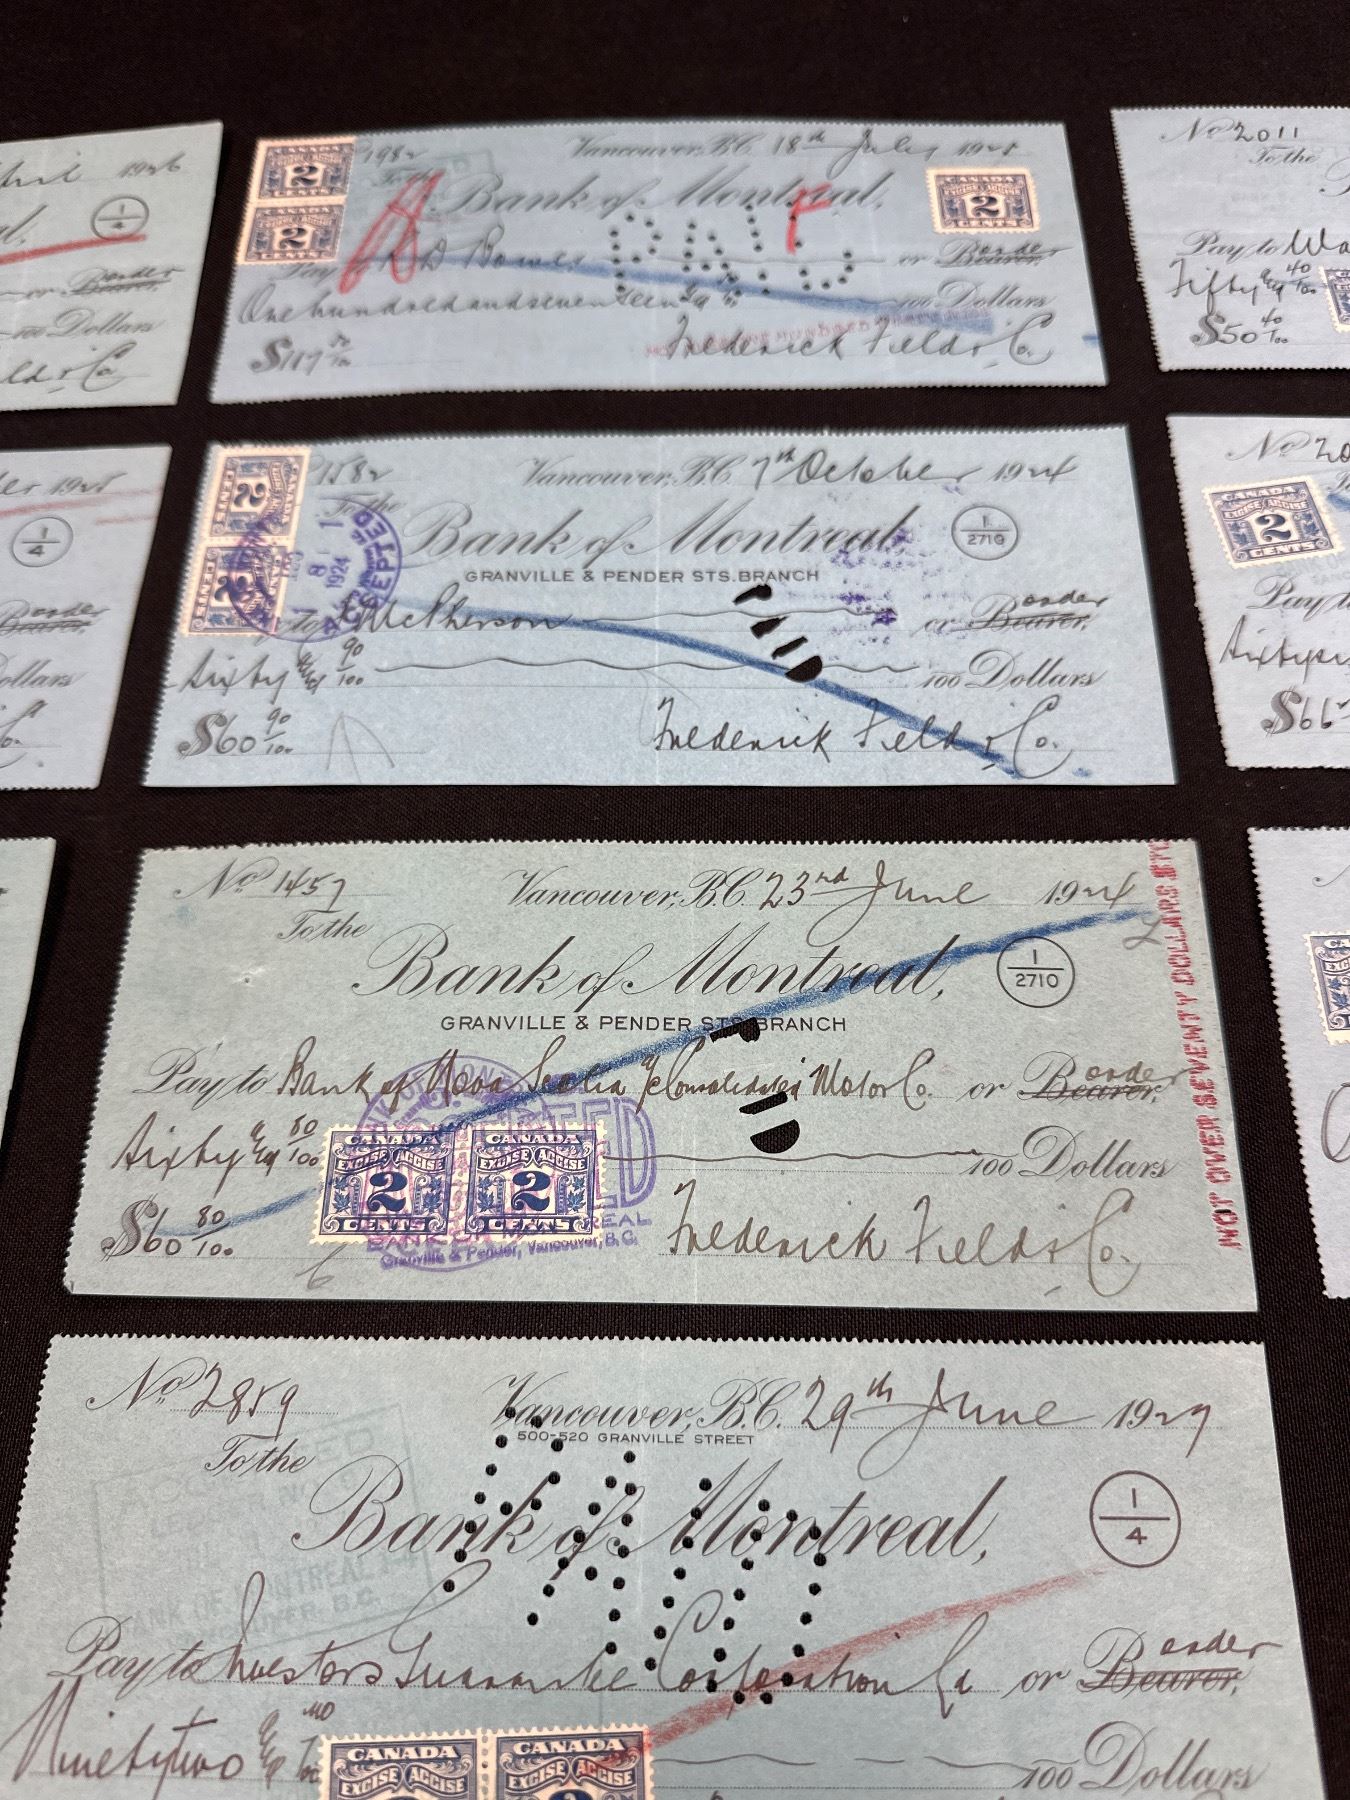 1926
1/4
order
Bearer,
100 Dollars
CANADA
2
CENTS
CANADA
2
CENTS
Vancouver, B.C. 18th July
To the
Bank of Montreal,
PAID
CANADA
EXCISE ACCISE
2
CENTS
Pay to
Bowes or Bearer, order
One hundred and seventeen
100 Dollars
$117
Frederick Field & Co.
No 2011
To the
Pay to
Fifty & 40/100
$50 40/100
1/4
order
Bearer,
Dollars
1582
Vancouver, B.C. 7th October 1924
To the
Bank of Montreal
1/2710
GRANVILLE & PENDER STS. BRANCH
2
CENTS
2
CENTS
8
1924
ACCEPTED
McPherson or Bearer, order
Sixty & 90/100
100 Dollars
$60 90/100
Frederick Field & Co.
No
CANADA
EXCISE ACCISE
2
CENTS
Pay to
$66
No 1457
Vancouver, B.C. 23rd June 1924
To the
Bank of Montreal,
1/2710
GRANVILLE & PENDER STS. BRANCH
Pay to Bank of Nova Scotia a/c Consolidated Motor Co. or Bearer, order
Sixty & 80/100
100 Dollars
CANADA
EXCISE ACCISE
2
CENTS
CANADA
EXCISE ACCISE
2
CENTS
Granville & Pender, Vancouver, B.C.
$60 80/100
Frederick Field & Co.
NOT OVER SEVENTY DOLLARS $70
No 2859
Vancouver, B.C. 29th June 1927
500-520 GRANVILLE STREET
To the
Bank of Montreal,
1/4
PAID
BANK OF MONTREAL
Pay to Investors Guarantee Corporation or Bearer, order
Ninety two
100 Dollars
CANADA
EXCISE ACCISE
CANADA
EXCISE ACCISE